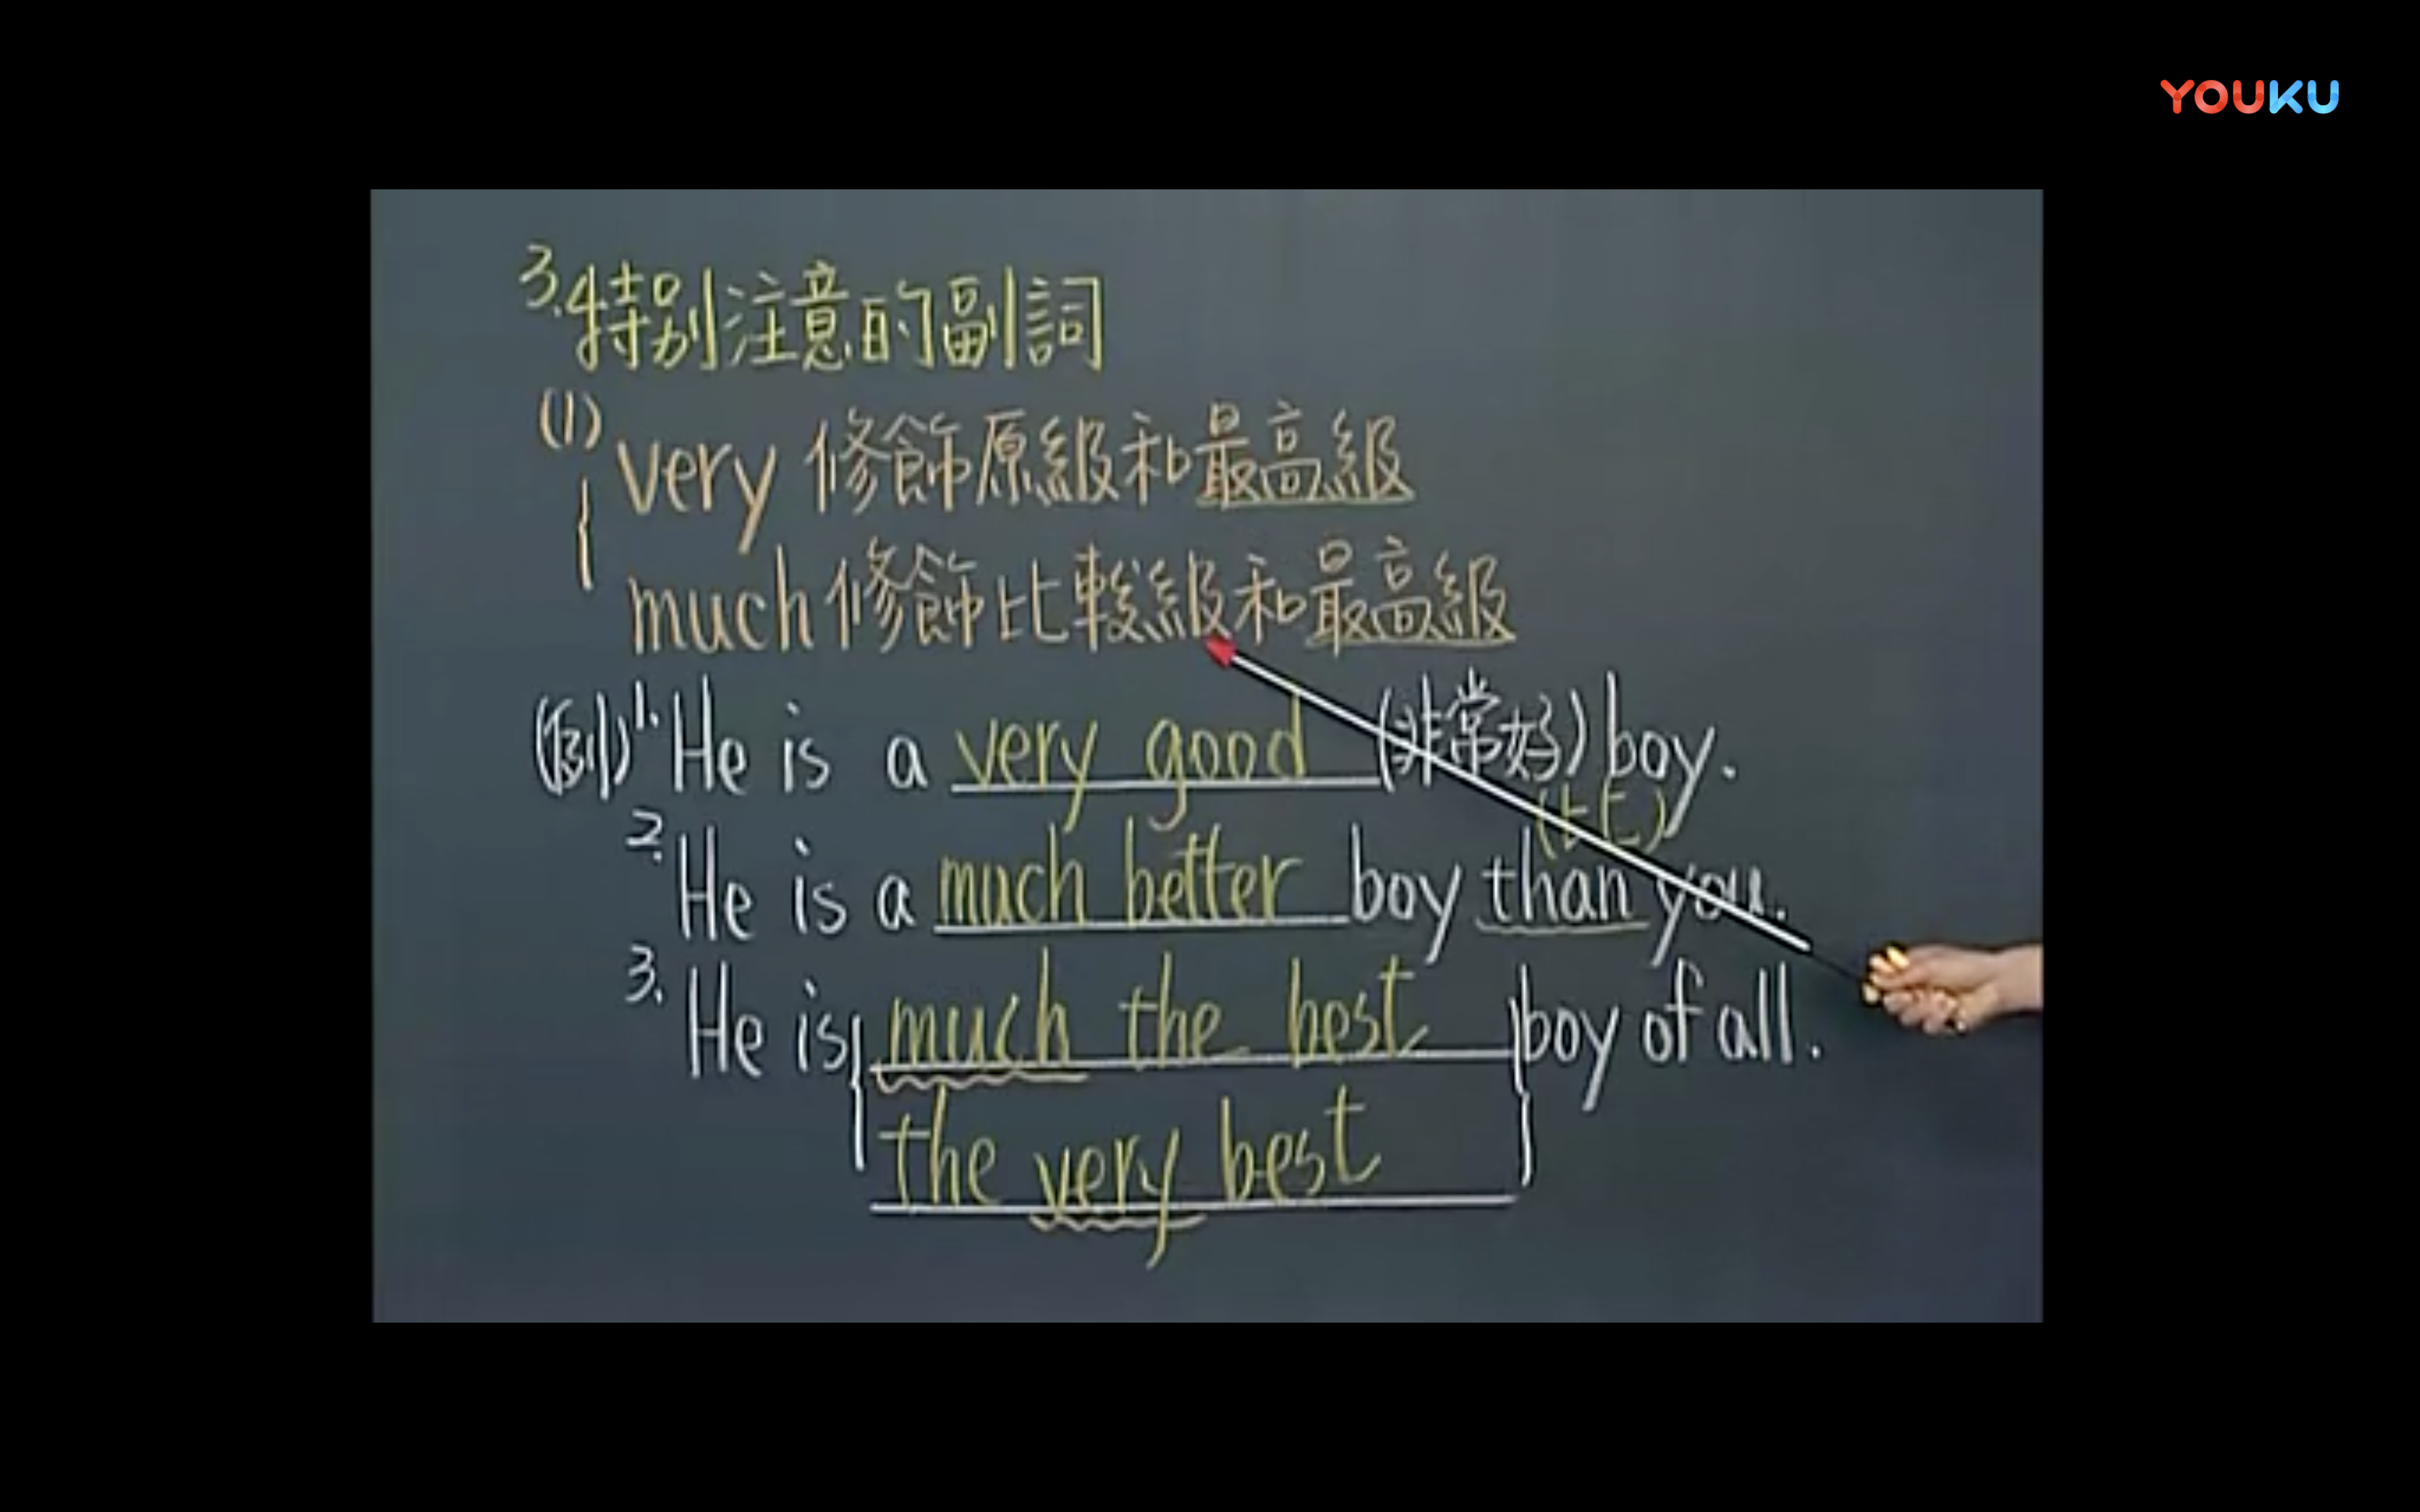 YOUKU
3.特別注意的副詞
(1) very 修飾原級和最高級
much 修飾比較級和最高級
(例) 1. He is a very good (非常好) boy.
(比)
2. He is a much better boy than you.
3. He is much the best boy of all.
the very best